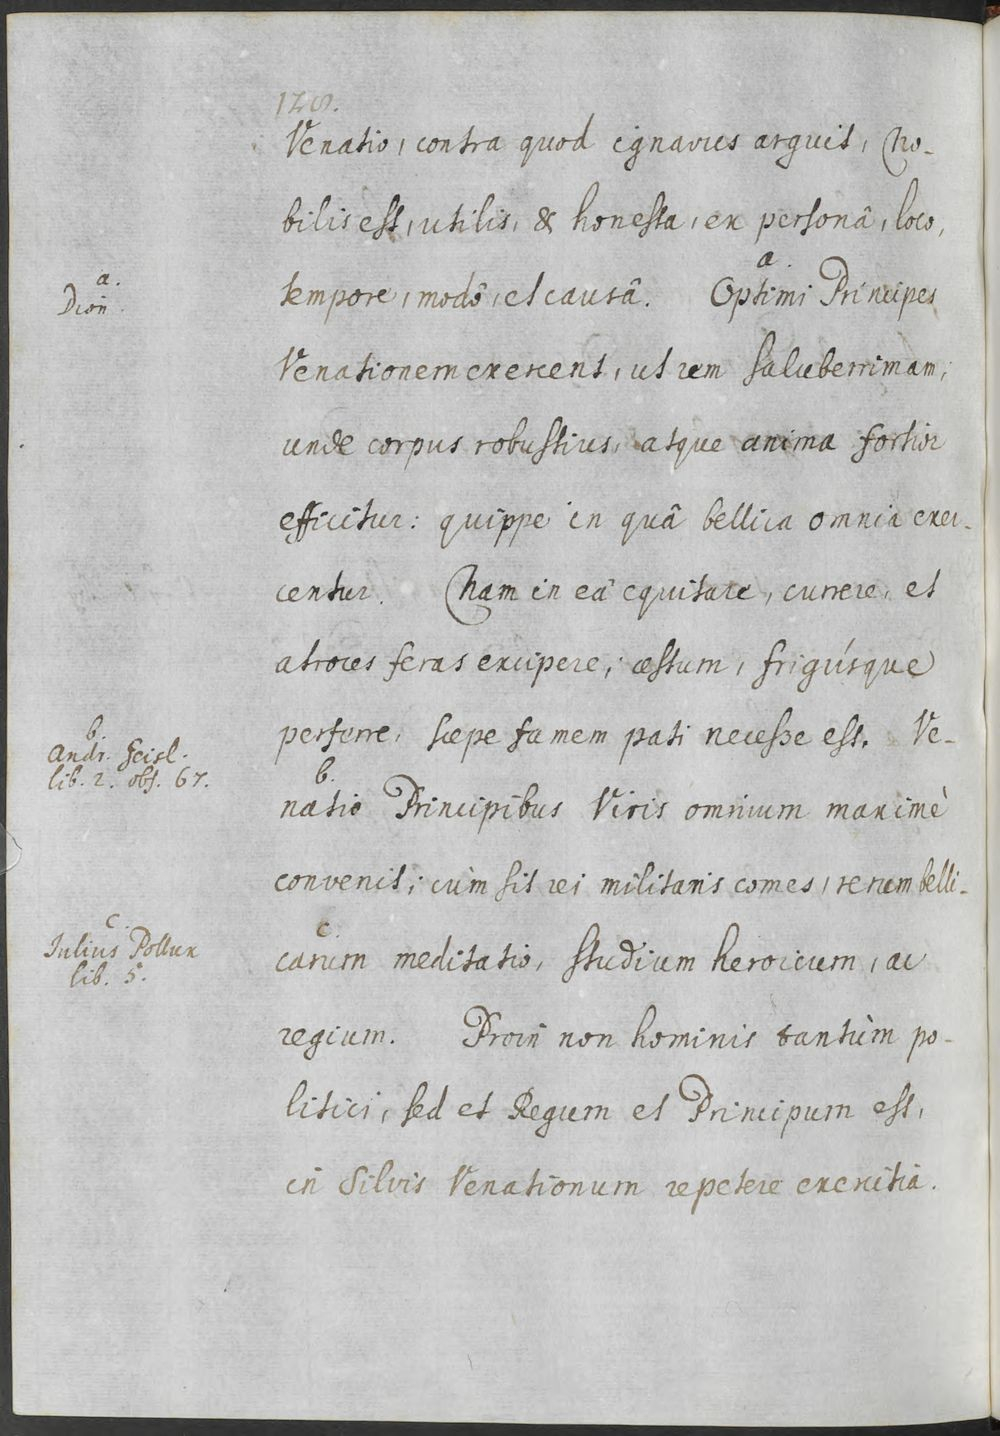 128.
Venatio, contra quod ignavus arguit, No-
bilis est, utilis, & honesta, ex personâ, loco,
a.
a.
Dion.
tempore, modô, et causâ. Optimi Principes
Venationem exercent, ut rem saluberrimam,
unde corpus robustius, atque anima fortior
efficitur: quippe in quâ bellica omnia exer-
centur. Nam in eâ equitare, currere, et
atroces feras excipere; æstum, frigúsque
perferre, sæpe famem pati necesse est. Ve-
b.
Andr. Geisl.
lib. 2. obs. 67.
b.
natio Principibus Viris omnium maximè
convenit; cùm sit rei militaris comes, rerum belli-
c.
Iulius Pollux
lib. 5.
c.
carum meditatio, studium heroicum, ac
regium. Proin non hominis tantùm po-
litici, sed et Regum et Principum est,
in Silvis Venationum repetere exercitia.